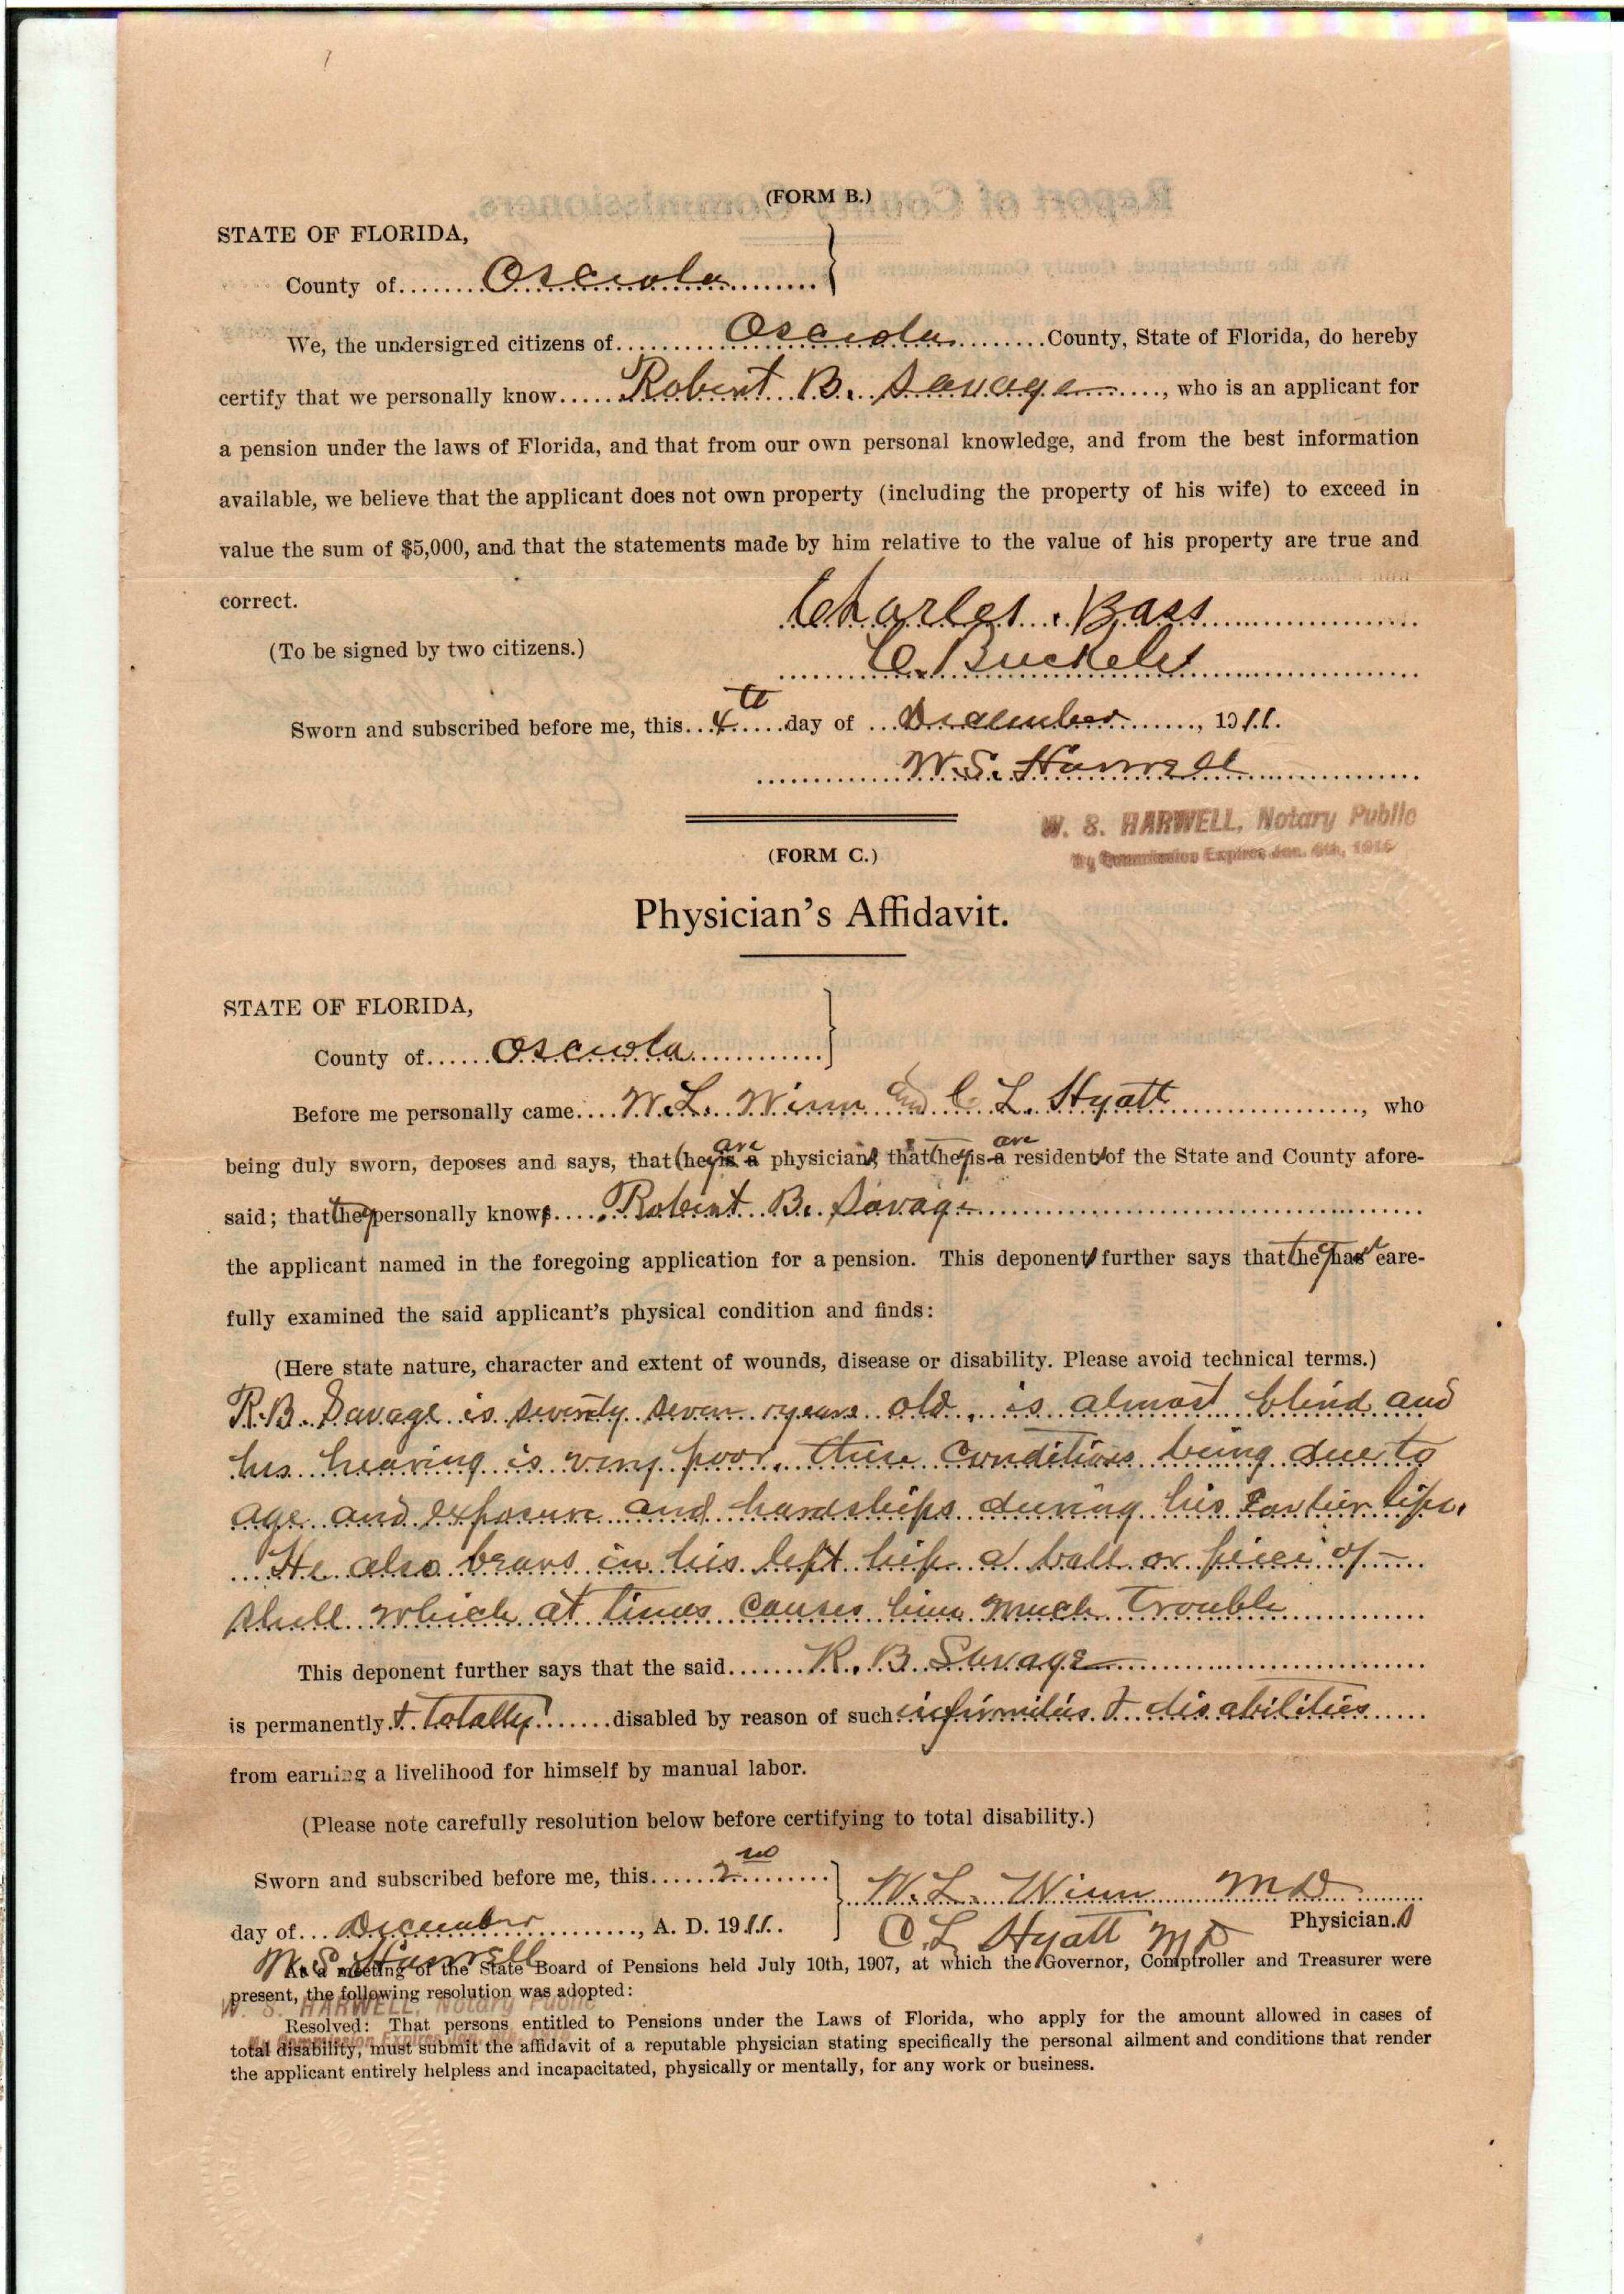 (FORM B.)
STATE OF FLORIDA,
County of........Osceola............
We, the undersigned citizens of..........Osceola..........County, State of Florida, do hereby
certify that we personally know.....Robert B. Savage....., who is an applicant for
a pension under the laws of Florida, and that from our own personal knowledge, and from the best information
available, we believe that the applicant does not own property (including the property of his wife) to exceed in
value the sum of $5,000, and that the statements made by him relative to the value of his property are true and
correct.
Charles Bass
(To be signed by two citizens.)
C. Buckels
Sworn and subscribed before me, this...4th....day of ...December......., 1911.
W. S. Harwell
W. S. HARWELL, Notary Public
My Commission Expires Jan. 4th, 1915
(FORM C.)
Physician's Affidavit.
STATE OF FLORIDA,
County of......Osceola............
Before me personally came....W. L. Winn and C L. Hyatt..............., who
being duly sworn, deposes and says, that they are physicians that they are residents of the State and County afore-
said; that they personally know.....Robert B. Savage..............................
the applicant named in the foregoing application for a pension. This deponents further says that they have care-
fully examined the said applicant's physical condition and finds:
(Here state nature, character and extent of wounds, disease or disability. Please avoid technical terms.)
R.B. Savage is seventy seven years old, is almost blind and
his hearing is very poor, these conditions being due to
age and exposure and hardships during his Earlier life.
He also bears in his left hip a ball or piece of
shell which at times causes him much trouble
This deponent further says that the said.......R. B Savage........................
is permanently & totally.......disabled by reason of such infirmities & disabilities.....
from earning a livelihood for himself by manual labor.
(Please note carefully resolution below before certifying to total disability.)
Sworn and subscribed before me, this......2nd.........
W. L. Winn MD
day of...December.........., A. D. 1911.
C L Hyatt MD Physician.s
W. S. Harwell
At a meeting of the State Board of Pensions held July 10th, 1907, at which the Governor, Comptroller and Treasurer were
present, the following resolution was adopted:
W. S. HARWELL, Notary Public
Resolved: That persons entitled to Pensions under the Laws of Florida, who apply for the amount allowed in cases of
My Commission Expires Jan.
total disability, must submit the affidavit of a reputable physician stating specifically the personal ailment and conditions that render
the applicant entirely helpless and incapacitated, physically or mentally, for any work or business.